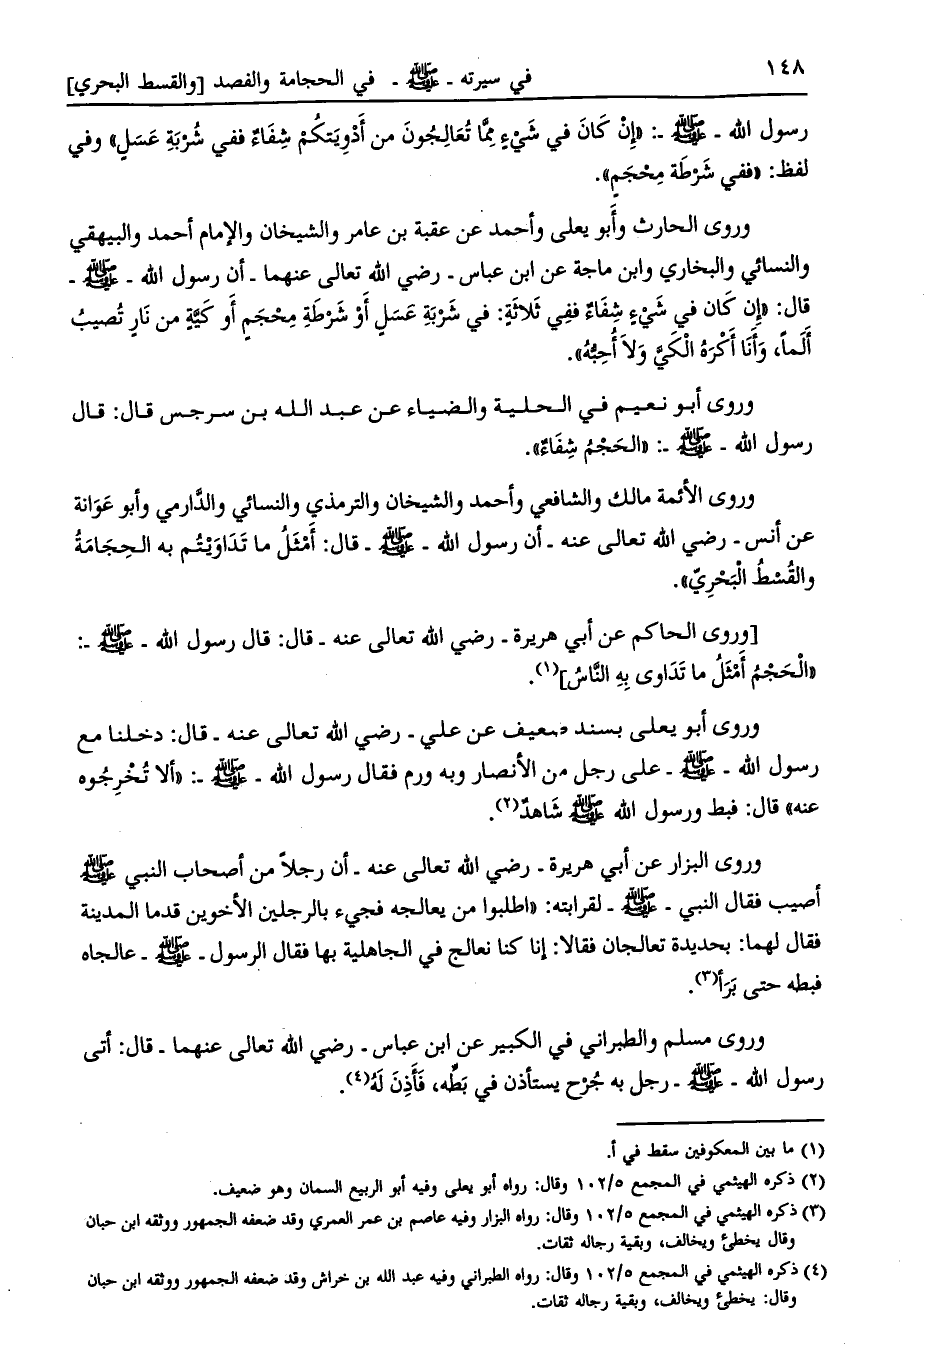 ١٤٨
في سيرته ـ ﷺ ـ في الحجامة والفصد [والقسط البحري]
رسول الله ـ ﷺ ـ: «إِنْ كَانَ في شَيْءٍ مِمَّا تُعَالِجُونَ من أَدْوِيَتِكُمْ شِفَاءٌ ففي شُرْبَةِ عَسَلٍ» وفي
لفظ: «ففي شَرْطَة مِحْجَمٍ».
وروى الحارث وأَبو يعلى وأحمد عن عقبة بن عامر والشيخان والإمام أحمد والبيهقي
والنسائي والبخاري وابن ماجة عن ابن عباس ـ رضي الله تعالى عنهما ـ أن رسول الله ـ ﷺ ـ
قال: «إِن كان في شَيْءٍ شِفَاءٌ ففِي ثَلاثَةٍ: في شَرْبَةِ عَسَلٍ أَوْ شَرْطَةِ مِحْجَمٍ أَو كَيَّةٍ من نَارٍ تُصيبُ
أَلَماً، وَأَنَا أَكْرَهُ الْكَيَّ وَلاَ أُحِبُّهُ».
وروى أبو نعيم في الحلية والضياء عن عبد الله بن سرجس قال: قال
رسول الله ـ ﷺ ـ: «الحَجْمُ شِفَاءٌ».
وروى الأئمة مالك والشافعي وأحمد والشيخان والترمذي والنسائي والدَّارمي وأبو عَوَانة
عن أنس ـ رضي الله تعالى عنه ـ أن رسول الله ـ ﷺ ـ قال: أَمْثَلُ ما تَدَاوَيْتُم به الحِجَامَةُ
والقُسْطُ الْبَحْرِيّ».
[وروى الحاكم عن أبي هريرة ـ رضي الله تعالى عنه ـ قال: قال رسول الله ـ ﷺ ـ:
«الْحَجْمُ أَمْثَلُ ما تَدَاوى بِهِ النَّاسُ](١).
وروى أبو يعلى بسند ضعيف عن علي ـ رضي الله تعالى عنه ـ قال: دخلنا مع
رسول الله ـ ﷺ ـ على رجل من الأنصار وبه ورم فقال رسول الله ـ ﷺ ـ: «ألا تُخْرِجُوه
عنه» قال: فبط ورسول الله ﷺ شَاهدٌ(٢).
وروى البزار عن أبي هريرة ـ رضي الله تعالى عنه ـ أن رجلاً من أصحاب النبي ﷺ
أصيب فقال النبي ـ ﷺ ـ لقرابته: «اطلبوا من يعالجه فجيء بالرجلين الأخوين قدما المدينة
فقال لهما: بحديدة تعالجان فقالا: إنا كنا نعالج في الجاهلية بها فقال الرسول ـ ﷺ ـ عالجاه
فبطه حتى بَرَأ(٣).
وروى مسلم والطبراني في الكبير عن ابن عباس ـ رضي الله تعالى عنهما ـ قال: أتى
رسول الله ـ ﷺ ـ رجل به جُرْح يستأذن في بَطِّه، فَأَذِنَ لَهُ(٤).
(١) ما بين المعكوفين سقط في أ.
(٢) ذكره الهيثمي في المجمع ١٠٢/٥ وقال: رواه أبو يعلى وفيه أبو الربيع السمان وهو ضعيف.
(٣) ذكره الهيثمي في المجمع ١٠٢/٥ وقال: رواه البزار وفيه عاصم بن عمر العمري وقد ضعفه الجمهور ووثقه ابن حبان
وقال يخطئ ويخالف، وبقية رجاله ثقات.
(٤) ذكره الهيثمي في المجمع ١٠٢/٥ وقال: رواه الطبراني وفيه عبد الله بن خراش وقد ضعفه الجمهور ووثقه ابن حبان
وقال: يخطئ ويخالف، وبقية رجاله ثقات.